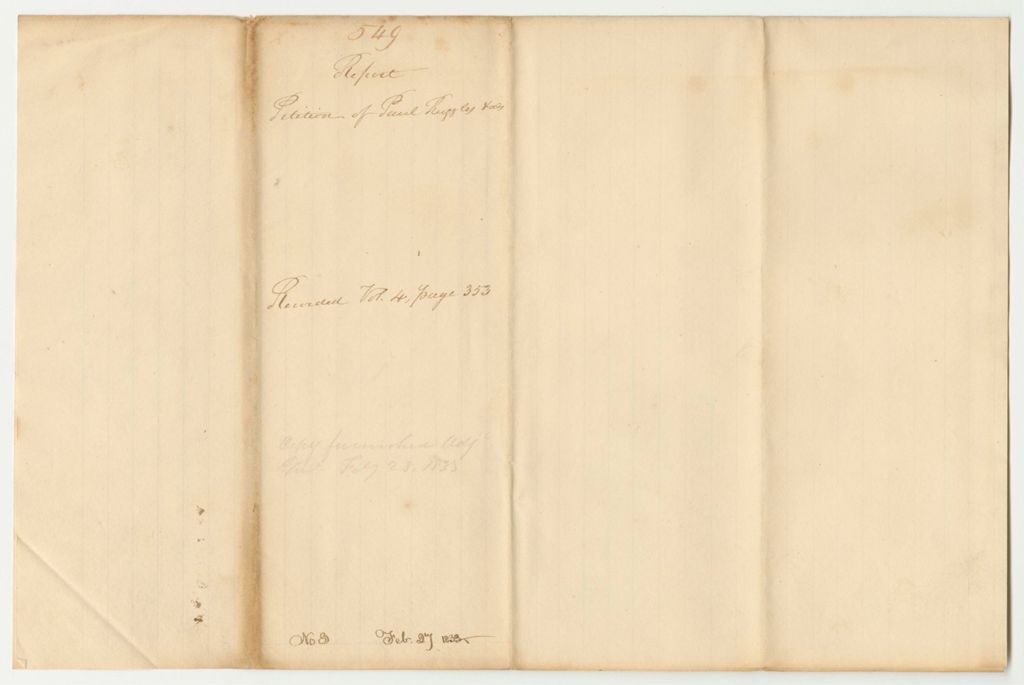 549
Report
Petition of Paul Ruggles & als
Recorded Vol. 4, page 353
Copy furnished Adjt
Genl. Feby 28. 1835
No. 3 Feb. 27